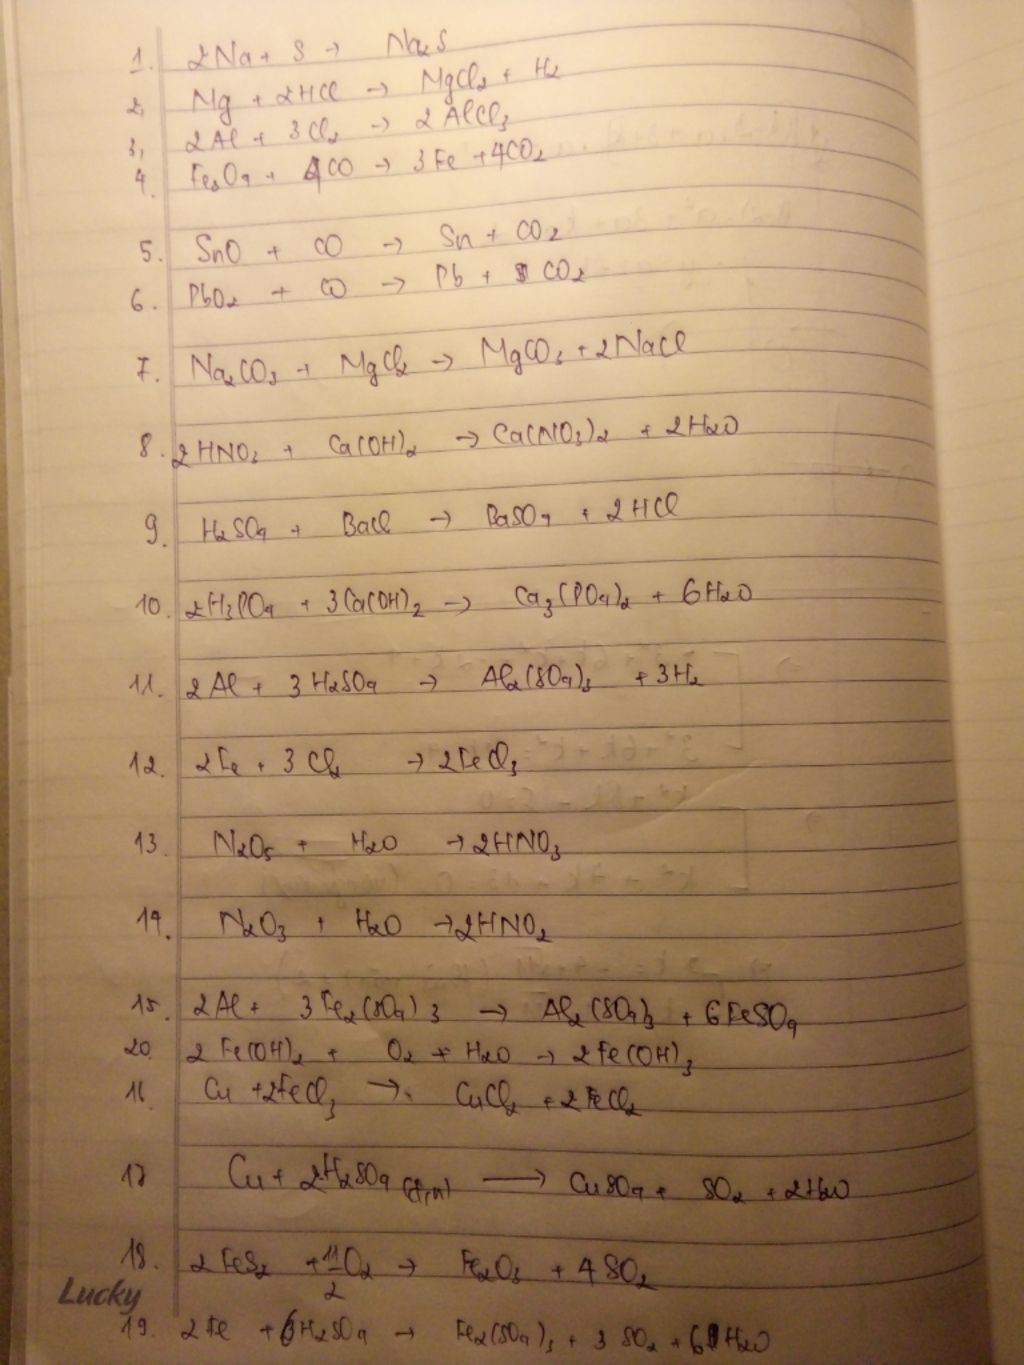 1. 2Na + S → Na₂S
2, Mg + 2HCl → MgCl₂ + H₂
3, 2Al + 3Cl₂ → 2AlCl₃
4. Fe₃O₄ + 4CO → 3Fe + 4CO₂
5. SnO + CO → Sn + CO₂
6. PbO₂ + CO → Pb + CO₂
7. Na₂CO₃ + MgCl₂ → MgCO₃ + 2NaCl
8. 2HNO₃ + Ca(OH)₂ → Ca(NO₃)₂ + 2H₂O
9. H₂SO₄ + BaCl → BaSO₄ + 2HCl
10. 2H₃PO₄ + 3Ca(OH)₂ → Ca₃(PO₄)₂ + 6H₂O
11. 2Al + 3H₂SO₄ → Al₂(SO₄)₃ + 3H₂
12. 2Fe + 3Cl₂ → 2FeCl₃
13. N₂O₅ + H₂O → 2HNO₃
14. N₂O₃ + H₂O → 2HNO₂
15. 2Al + 3Fe₂(SO₄)3 → Al₂(SO₄)₃ + 6FeSO₄
20. 2Fe(OH)₂ + O₂ + H₂O → 2Fe(OH)₃
16. Cu + 2FeCl₃ → CuCl₂ + 2FeCl₂
17 Cu + 2H₂SO₄ (đ,n) → CuSO₄ + SO₂ + 2H₂O
18. 2FeS₂ + 11/2 O₂ → Fe₂O₃ + 4SO₂
Lucky
19. 2Fe + 6H₂SO₄ → Fe₂(SO₄)₃ + 3SO₂ + 6H₂O